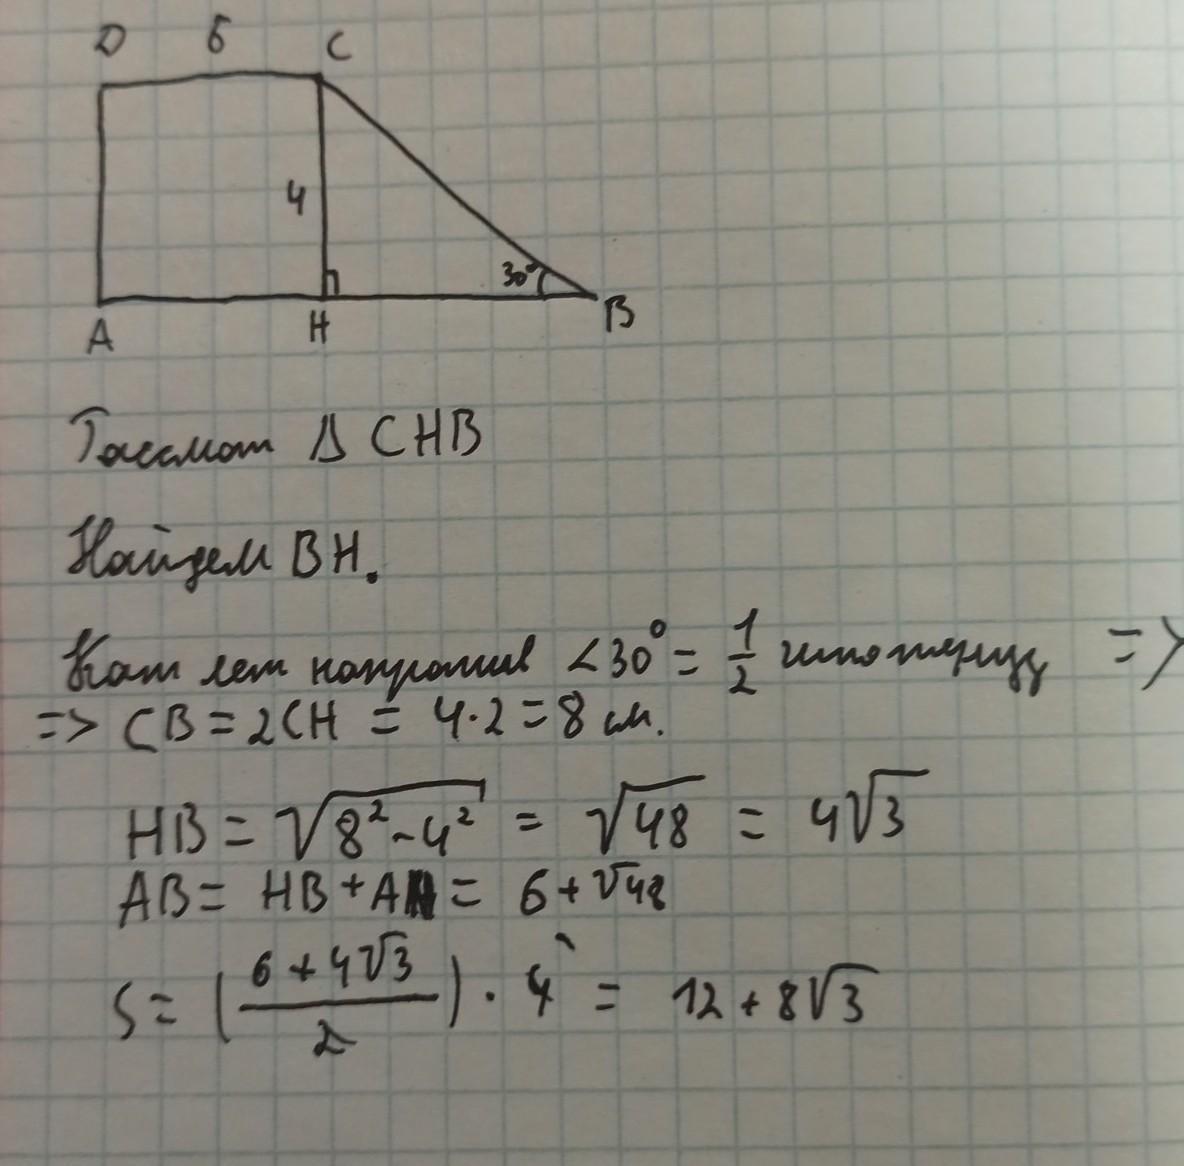 D 6 C
4
30°
A H B
Рассмот Δ CHB
Найдем BH.
Катет лет напротив <30° = 1/2 гипотенузы =>
=> CB = 2CH = 4·2 = 8 см.
HB = √(8² - 4²) = √48 = 4√3
AB = HB + AH = 6 + √48
S = ((6 + 4√3)/2) · 4 = 12 + 8√3